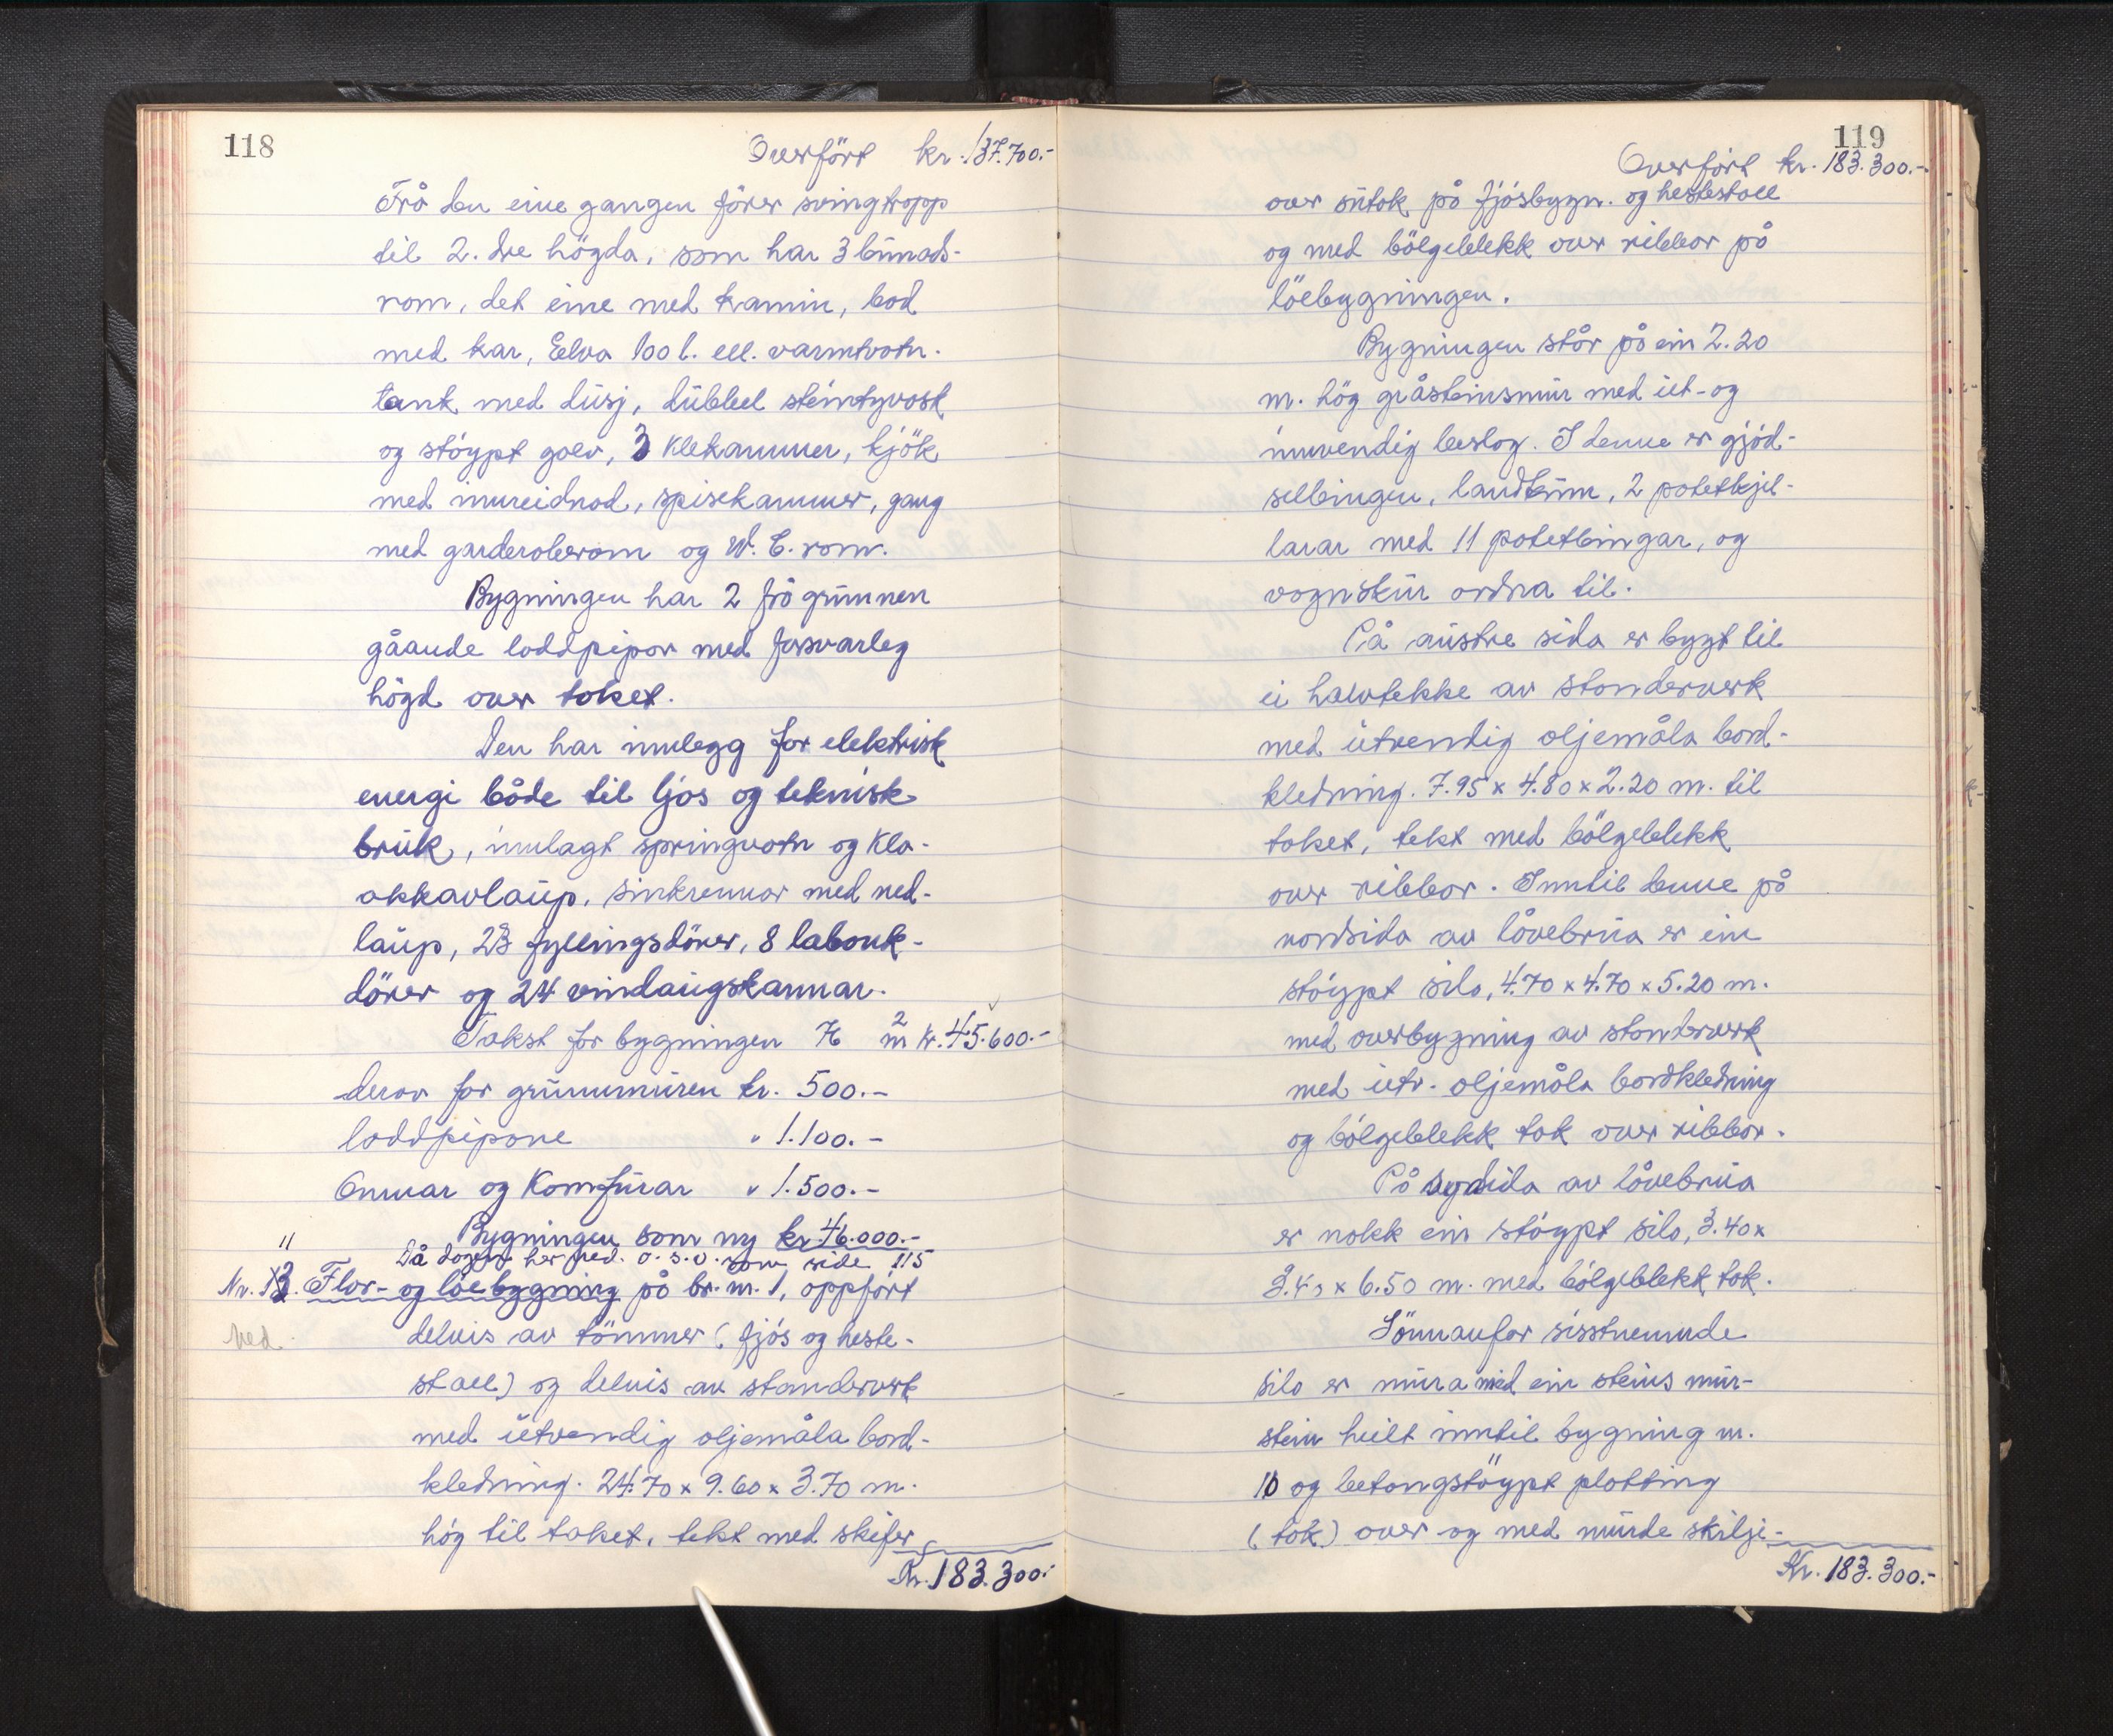 118
Overfört kr. 137.700.-
Frå den eine gangen förer svingtropp
til 2. dre högda, som har 3 búnads-
rom, det eine med kamin, bad
med kar, Elva 100 l. ell. varmtvatn.
tank med dúsj, dúbbel steintyvask
og stöypt golv, 3 klekammer, kjök
med innreidnad, spisekammer, gang
med garderoberom og W.C. rom.
Bygningen har 2 frå grúnnen
gåande loddpipor med forsvarleg
högd over taket.
Den har innlegg for elektrisk
energi både til ljos og teknisk
brúk, innlagt springvatn og klo-
akkavlaúp, sinkrennor med ned-
laúp, 23 fyllingsdörer, 8 labank-
dörer og 24 vindaúgskarmar.
Takst for bygningen 76 m2 kr. 45.600.-
derav for grúnnmúren kr. 500.-
loddpipone " 1.100.-
Omnar og Komfúrar " 1.500.-
Bygningen som ny kr 46.000.-
11 Då dagen her ned. o.s.v. som side 115
Nr. 12. Flor- og löebygning på br. nr. 1, oppfört
Ned.
delvis av tömmer (fjós og heste-
stall) og delvis av standerverk
med útvendig oljemåla bord-
kledning. 24.70 x 9.60 x 3.70 m.
hög til taket, tekt med skifer
Kr. 183.300.-
119
Overfört kr. 183.300.-
over sútak på fjósbygn. og hestestall
og med bölgeblekk over ribbor på
löebygningen.
Bygningen står på ein 2.20
m. hög gråsteinsmúr med út- og
innvendig beslag. I denne er gjöd-
selbingen, landkúm, 2 potetkjel-
larar med 11 potetbingar, og
vognskúr ordna til.
På aústre sida er bygt til
ei halvtekke av standerverk
med útvendig oljemåla bord-
kledning. 7.95 x 4.80 x 2.20 m. til
taket, tekt med bölgeblekk
over ribbor. Inntil denne på
nordsida av låvebrúa er ein
stöypt silo, 4.70 x 4.70 x 5.20 m.
med overbygning av standerverk
med útv. oljemåla bordkledning
og bölgeblekk tak over ribbor.
På sydsida av låvebrúa
er nokk ein stöypt silo, 3.40 x
3.40 x 6.50 m. med bölgeblekk tak.
Sönnanfor sisstnemnde
silo er múra med ein steins múr-
stein heilt inntil bygning nr.
10 og betongstöypt platting
(tak) over og med múrde skilje-
Kr. 183.300.-